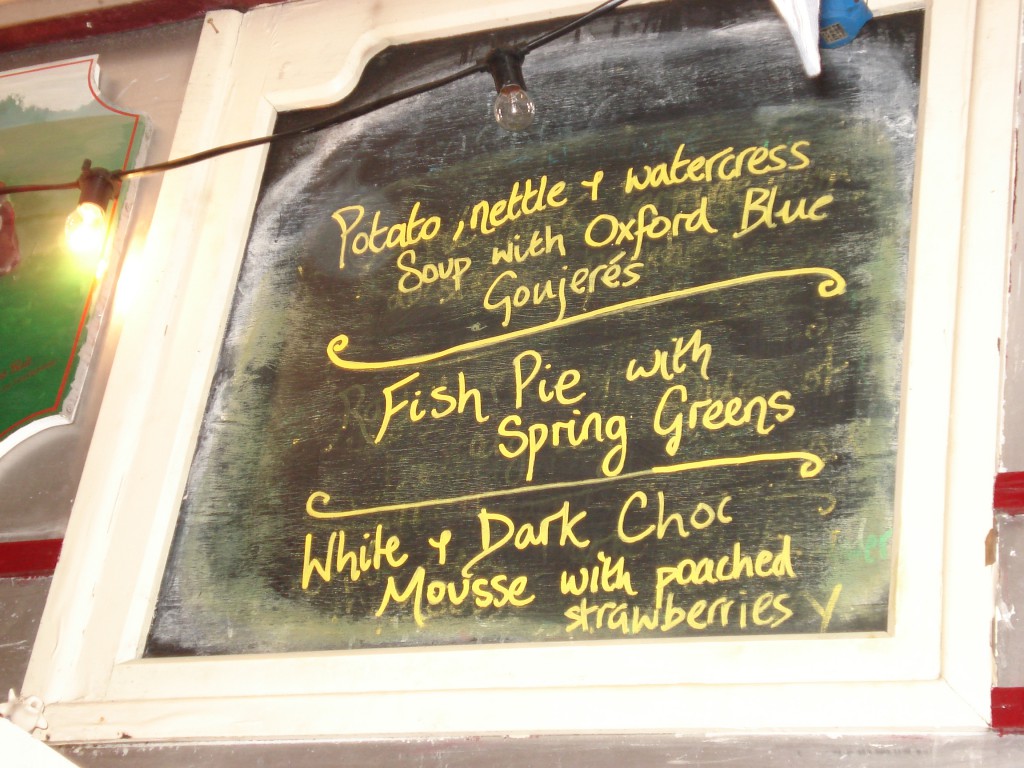 Potato, nettle + watercress
Soup with Oxford Blue
Goujerés
Fish Pie with
Spring Greens
White + Dark Choc
Mousse with poached
strawberries